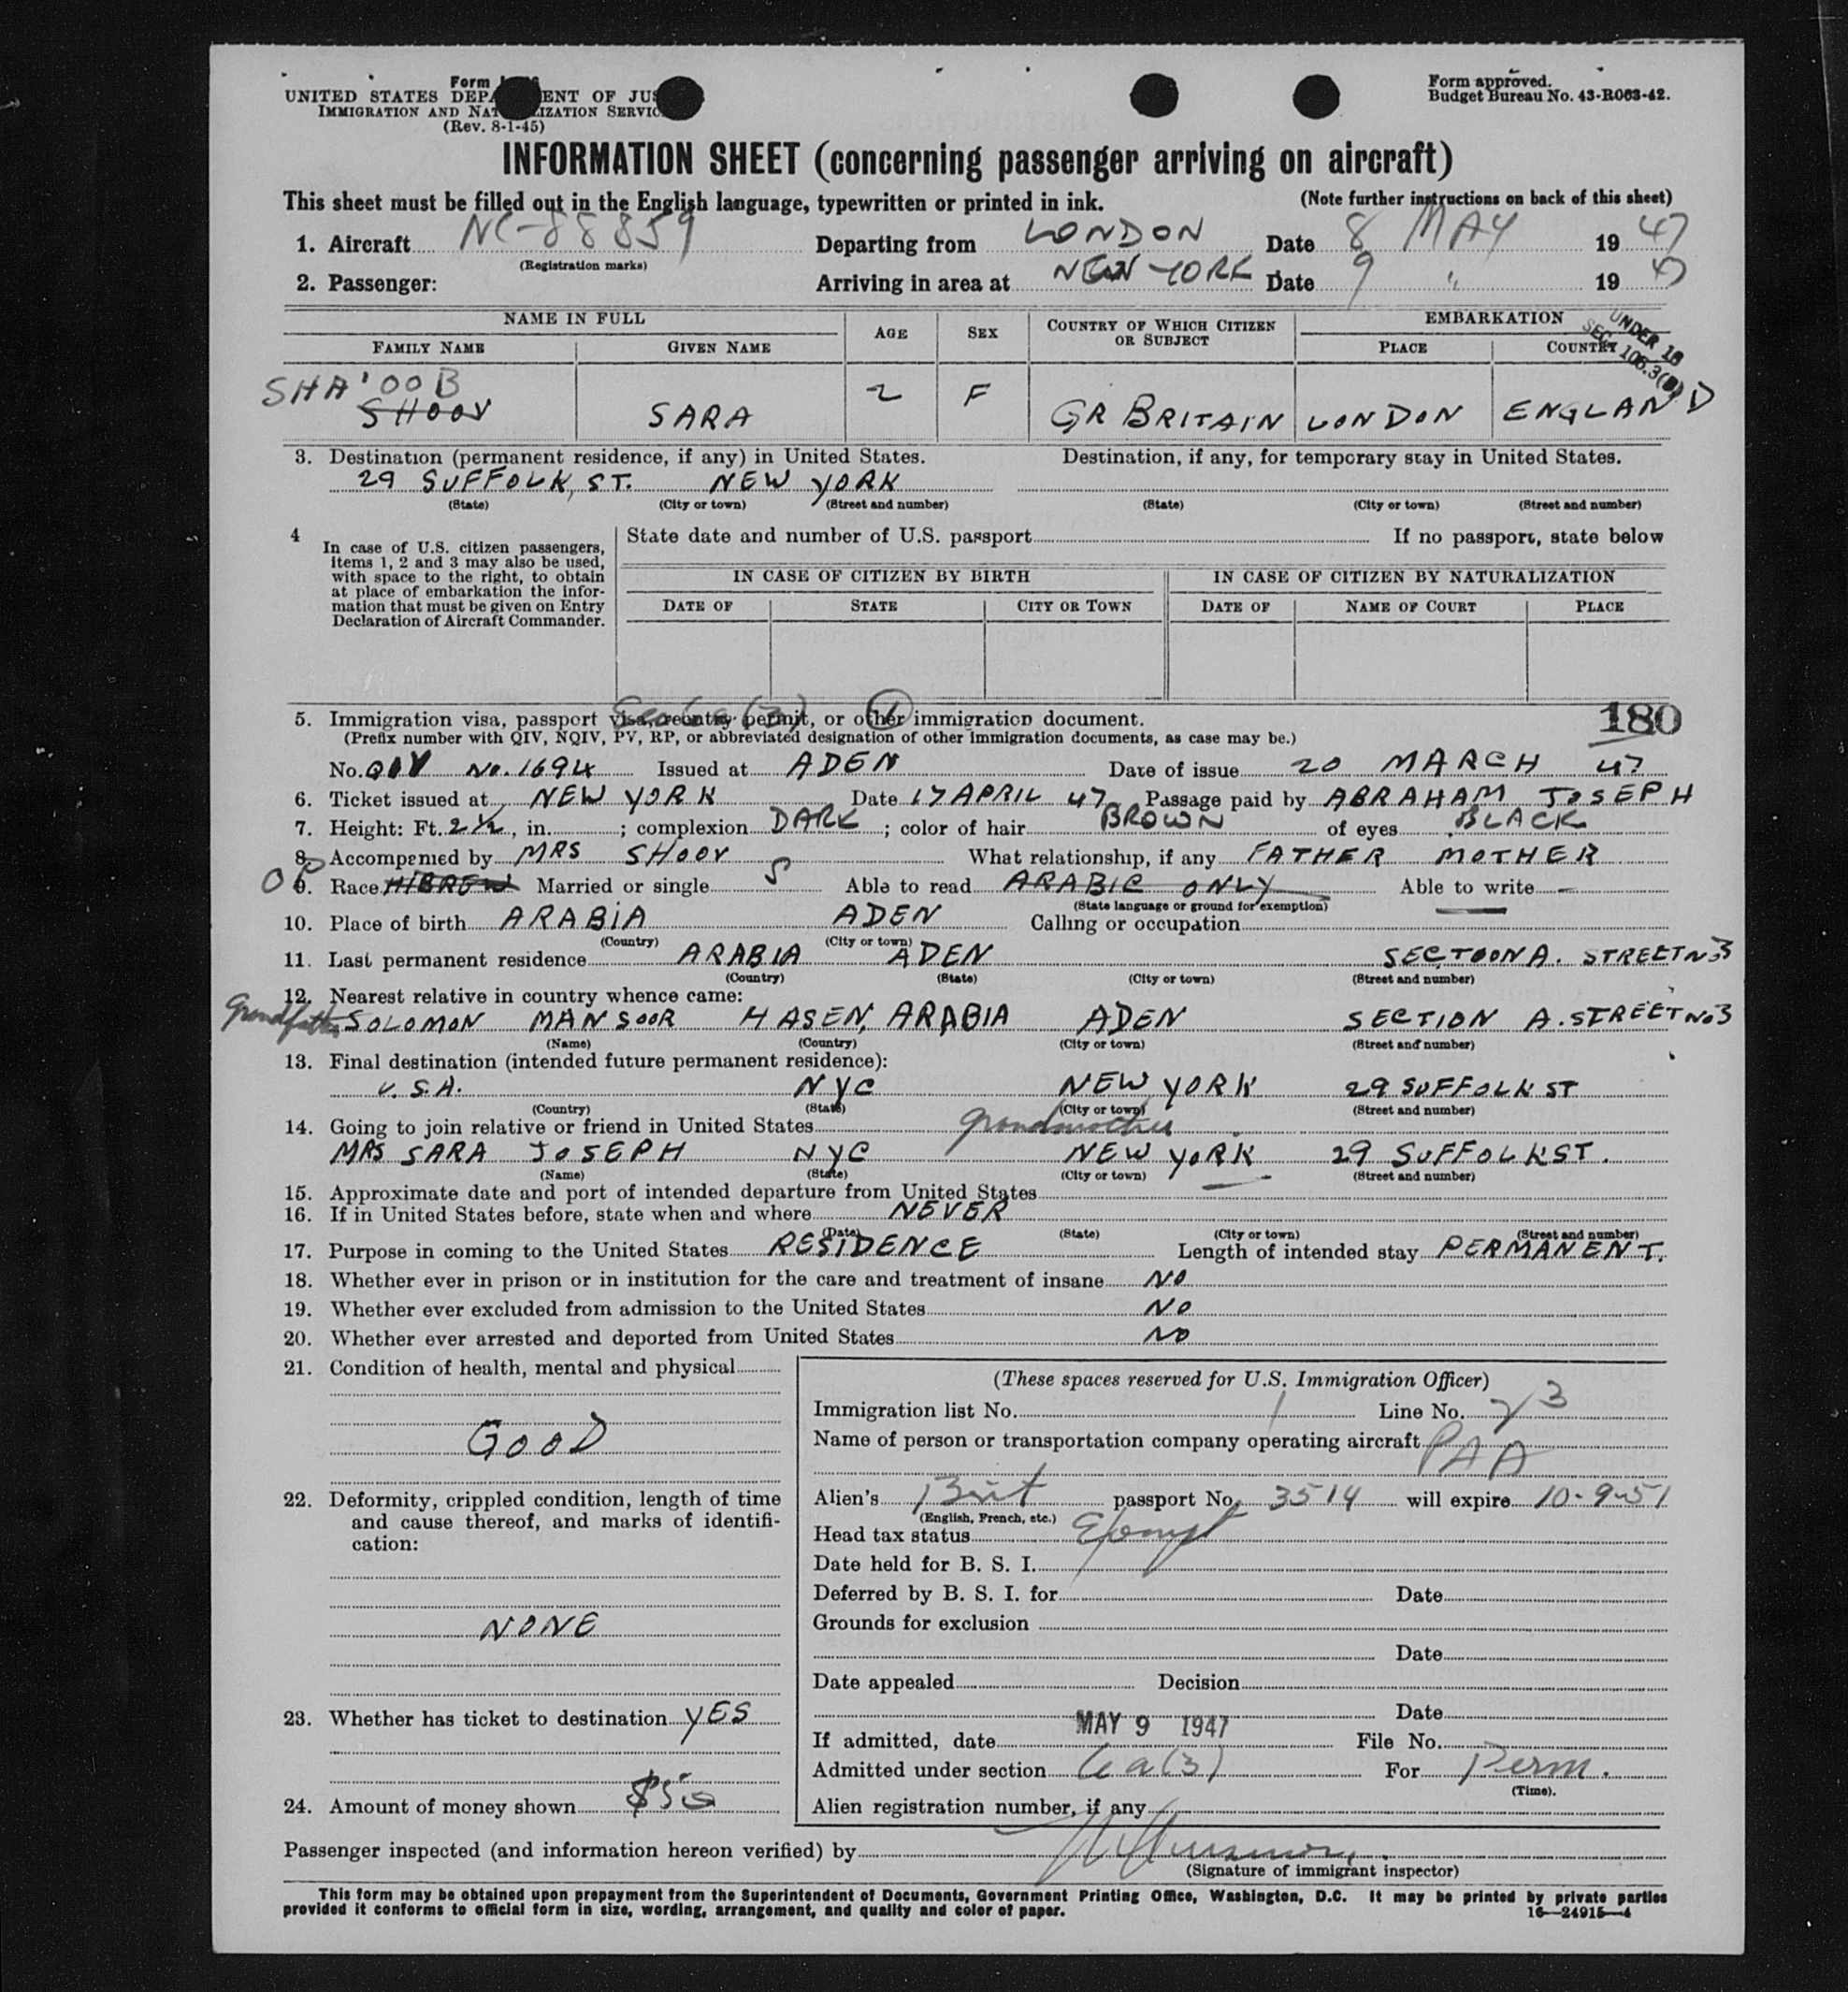 Form
UNITED STATES DEPA ENT OF JUS
IMMIGRATION AND NAT IZATION SERVIC
(Rev. 8-1-45)
Form approved.
Budget Bureau No. 43-R063-42.
INFORMATION SHEET (concerning passenger arriving on aircraft)
This sheet must be filled out in the English language, typewritten or printed in ink. (Note further instructions on back of this sheet)
1. Aircraft NC-88859 Departing from LONDON Date 8 MAY 19 47
(Registration marks)
2. Passenger: Arriving in area at NEW YORK Date 9 " 19 47
NAME IN FULL AGE SEX COUNTRY OF WHICH CITIZEN OR SUBJECT EMBARKATION
FAMILY NAME GIVEN NAME PLACE COUNTRY
UNDER 16
SEC 105.3(B)
SHA'OOB
SHOOV SARA 2 F GR BRITAIN LONDON ENGLAND
3. Destination (permanent residence, if any) in United States. Destination, if any, for temporary stay in United States.
29 SUFFOLK, ST. NEW YORK
(State) (City or town) (Street and number) (State) (City or town) (Street and number)
4 In case of U.S. citizen passengers, items 1, 2 and 3 may also be used, with space to the right, to obtain at place of embarkation the information that must be given on Entry Declaration of Aircraft Commander.
State date and number of U.S. passport If no passport, state below
IN CASE OF CITIZEN BY BIRTH IN CASE OF CITIZEN BY NATURALIZATION
DATE OF STATE CITY OR TOWN DATE OF NAME OF COURT PLACE
Sec 6a(3) 1
5. Immigration visa, passport visa, reentry permit, or other immigration document. 180
(Prefix number with QIV, NQIV, PV, RP, or abbreviated designation of other immigration documents, as case may be.)
No. QIV No. 1694 Issued at ADEN Date of issue 20 MARCH 47
6. Ticket issued at NEW YORK Date 17 APRIL 47 Passage paid by ABRAHAM JOSEPH
7. Height: Ft. 2½, in. ; complexion DARK ; color of hair BROWN of eyes BLACK
8. Accompanied by MRS SHOOV What relationship, if any FATHER MOTHER
9. Race HIBREW Married or single S Able to read ARABIC ONLY Able to write -
(State language or ground for exemption)
10. Place of birth ARABIA ADEN Calling or occupation
(Country) (City or town)
11. Last permanent residence ARABIA ADEN SECTOON A. STREET No 3
(Country) (State) (City or town) (Street and number)
12. Nearest relative in country whence came:
grandfather SOLOMON MANSOOR HASEN, ARABIA ADEN SECTION A. STREET No 3
(Name) (Country) (City or town) (Street and number)
13. Final destination (intended future permanent residence):
U.S.A. NYC NEW YORK 29 SUFFOLK ST
(Country) (State) (City or town) (Street and number)
14. Going to join relative or friend in United States grandmother
MRS SARA JOSEPH NYC NEW YORK 29 SUFFOLK ST.
(Name) (State) (City or town) (Street and number)
15. Approximate date and port of intended departure from United States
16. If in United States before, state when and where NEVER
(Date) (State) (City or town) (Street and number)
17. Purpose in coming to the United States RESIDENCE Length of intended stay PERMANENT.
18. Whether ever in prison or in institution for the care and treatment of insane NO
19. Whether ever excluded from admission to the United States NO
20. Whether ever arrested and deported from United States NO
21. Condition of health, mental and physical
GOOD
22. Deformity, crippled condition, length of time and cause thereof, and marks of identification:
NONE
23. Whether has ticket to destination YES
24. Amount of money shown $50
(These spaces reserved for U.S. Immigration Officer)
Immigration list No. 1 Line No. 3
Name of person or transportation company operating aircraft PAA
Alien's Brit passport No. 3514 will expire 10-9-51
(English, French, etc.)
Head tax status Exempt
Date held for B. S. I.
Deferred by B. S. I. for Date
Grounds for exclusion
Date
Date appealed Decision
Date
If admitted, date MAY 9 1947 File No.
Admitted under section 6a(3) For Perm.
(Time).
Alien registration number, if any
Passenger inspected (and information hereon verified) by
(Signature of immigrant inspector)
This form may be obtained upon prepayment from the Superintendent of Documents, Government Printing Office, Washington, D.C. It may be printed by private parties
provided it conforms to official form in size, wording, arrangement, and quality and color of paper. 16—24915-4